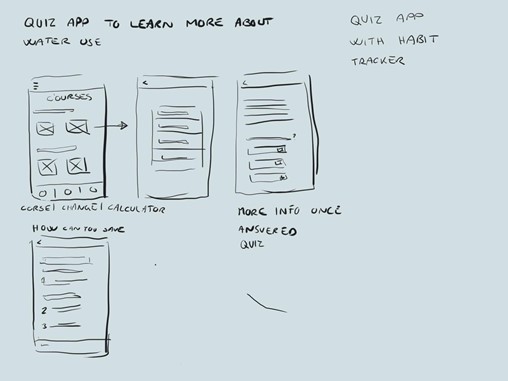 QUIZ APP TO LEARN MORE ABOUT
WATER USE
QUIZ APP
WITH HABIT
TRACKER
COURSES
CORSE| CHANGE| CALCULATOR
MORE INFO ONCE
ANSWERED
QUIZ
HOW CAN YOU SAVE
1
2
3